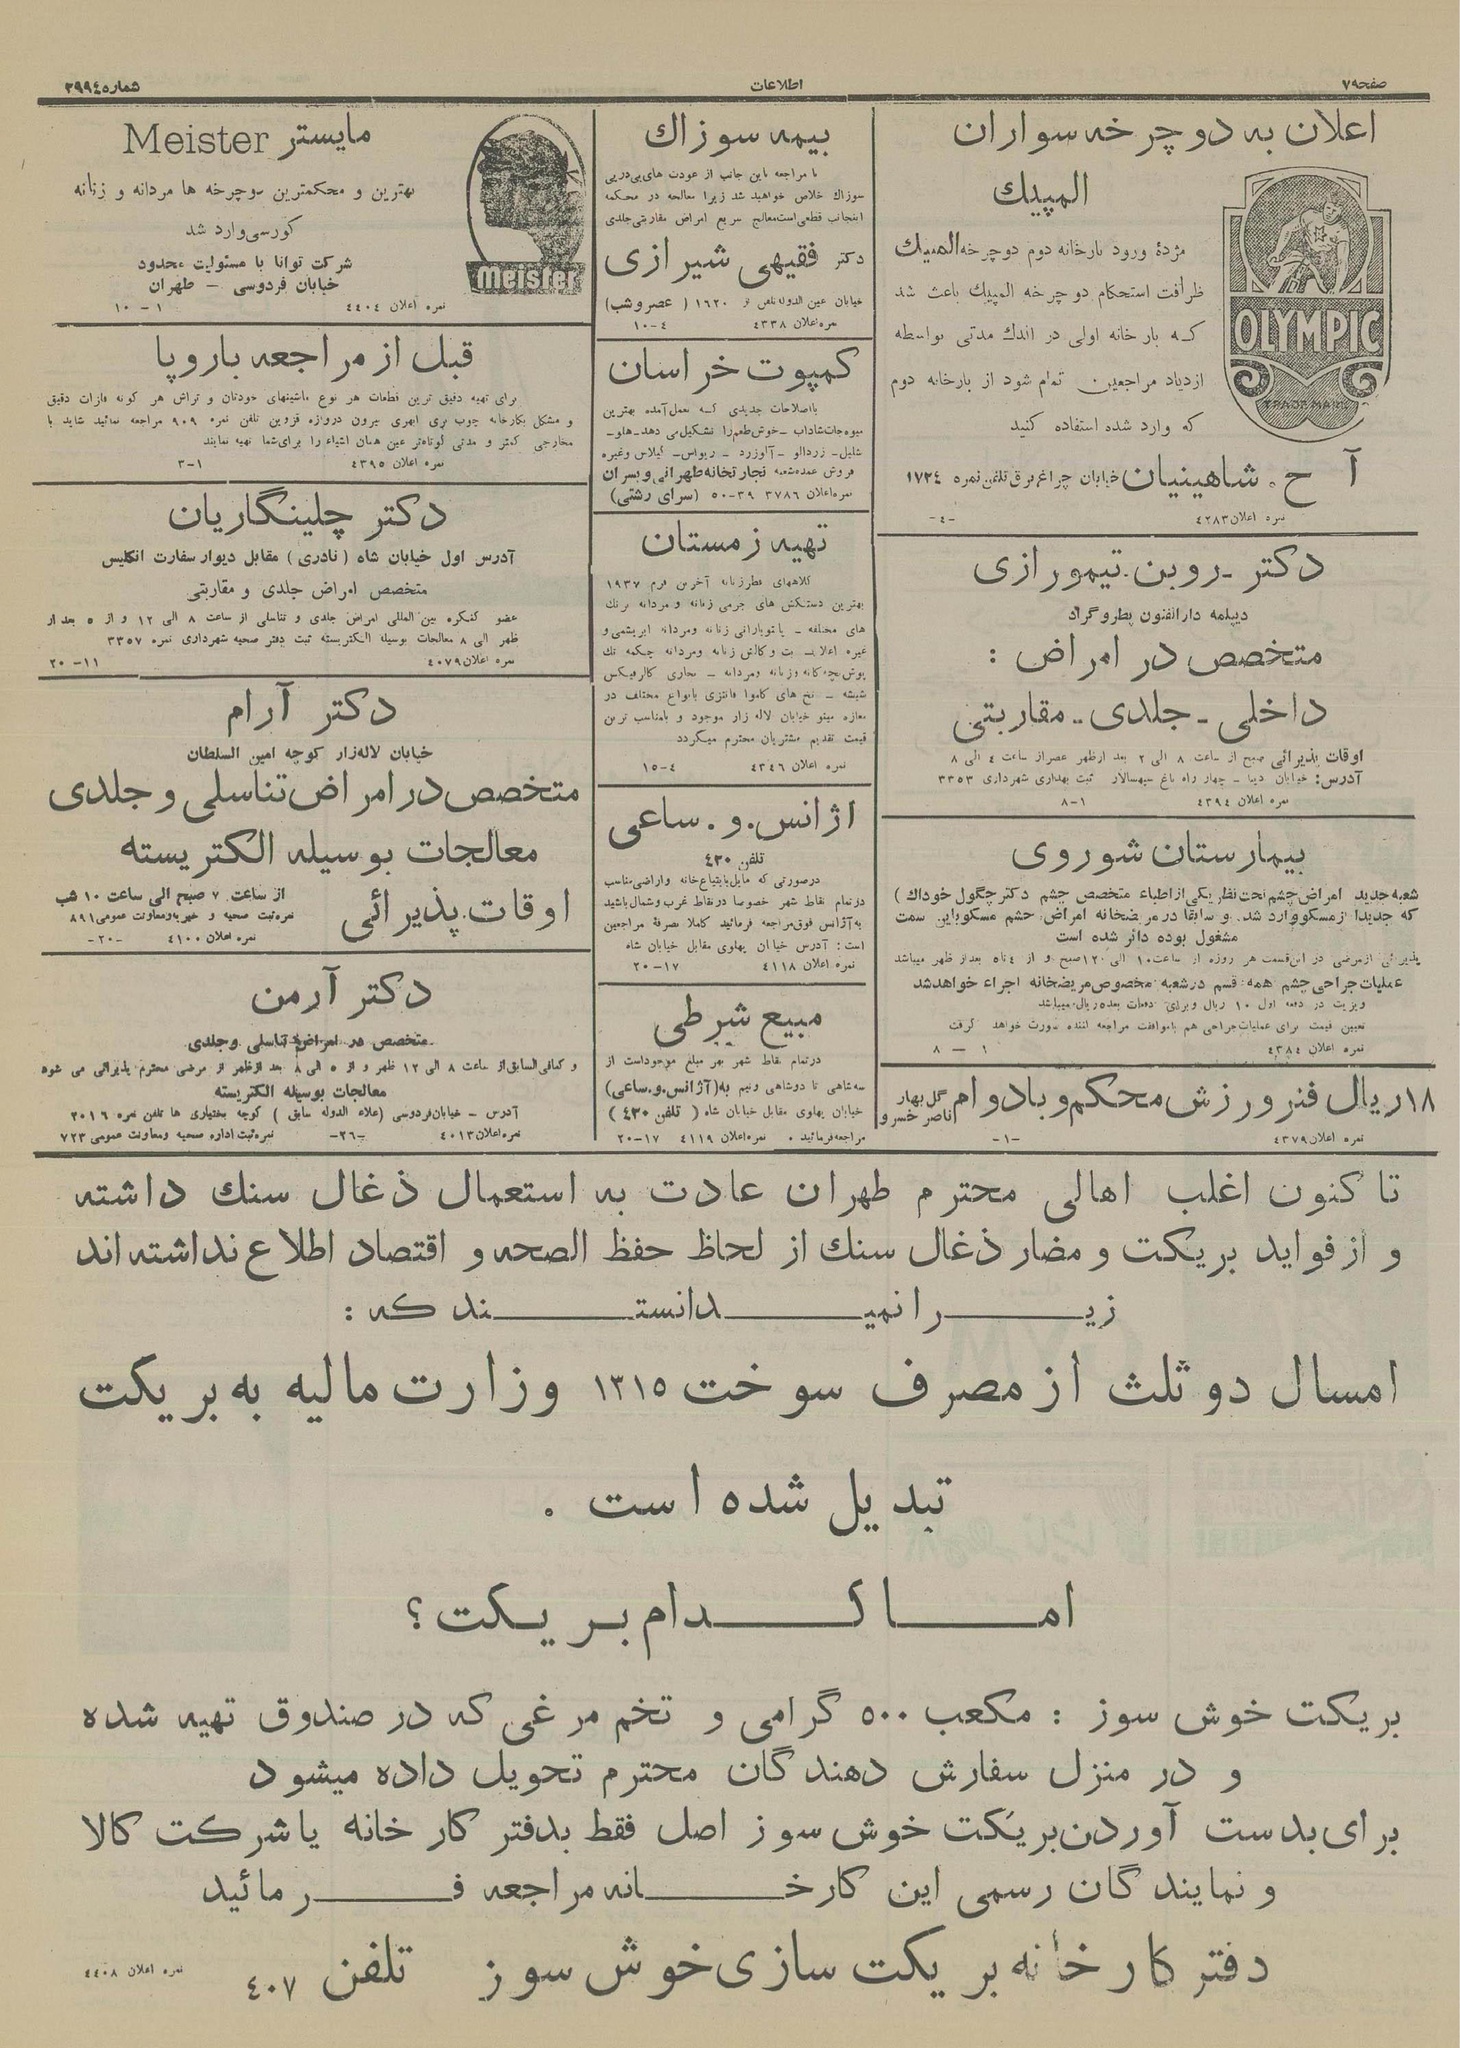 صفحه ۷
اطلاعات
شماره ۲۹۹٤
اعلان به دوچرخه سواران
المپیك
مژدۀ ورود بارخانه دوم دوچرخه المپیك
ظرافت استحکام دوچرخه المپیك باعث شد
که بارخانه اولی در اندك مدتی بواسطه
ازدیاد مراجعین تمام شود از بارخانه دوم
که وارد شده استفاده کنید
OLYMPIC
TRADE MARK
آ ح. شاهینیان خیابان چراغ برق تلفن نمره ۱۷۲٤
نمره اعلان ٤۲۸۳ -٤-
دکتر ـ روبن ـ تیمورازی
دیپلمه دارالفنون پطروگراد
متخصص در امراض :
داخلی ـ جلدی ـ مقاربتی
اوقات پذیرائی صبح از ساعت ۸ الی ۲ بعد ازظهر عصر از ساعت ٤ الی ۸
آدرس: خیابان دیبا ـ چهار راه باغ سپهسالار ثبت بهداری شهرداری ۳۳۵۳
نمره اعلان ٤۳۹٤ ۸-۱
بیمارستان شوروی
شعبه جدید امراض چشم تحت نظر یکی از اطباء متخصص چشم دکتر چگول خوداك )
که جدیدا از مسکو وارد شد و سابقا در مریضخانه امراض چشم مسکو باین سمت
مشغول بوده دائر شده است
پذیرائی از مرضی در این قسمت هر روزه از ساعت ۱۰ الی ۱۲ صبح و از ٤ تا ٥ بعد از ظهر میباشد
عملیات جراحی چشم همه قسم در شعبه مخصوص مریضخانه اجراء خواهد شد
ویزیت در دفعه اول ۱۰ ریال و برای دفعات بعد ۵ ریال میباشد
تعیین قیمت برای عملیات جراحی هم با موافقت مراجعه کننده صورت خواهد گرفت
نمره اعلان ٤۳۸٤ ۱ — ۸
۱۸ ریال فنر ورزش محکم و بادوام گل بهار
ناصر خسرو
نمره اعلان ٤۳۷۹ -۱-
بیمه سوزاك
با مراجعه باین جانب از عودت های پی در پی
سوزاك خلاص خواهید شد زیرا معالجه در محکمه
اینجانب قطعی است معالج سریع امراض مقاربتی جلدی
دکتر فقیهی شیرازی
خیابان عین الدوله تلفن نمره ۱٦۲۰ ( عصر و شب )
نمره اعلان ٤۳۳۸ ٤-۱۰
کمپوت خراسان
با اصلاحات جدیدی که بعمل آمده بهترین
میوه جات شاداب ـ خوش طعم را تشکیل می دهد ـ هلو ـ
شلیل ـ زردالو ـ آلوزرد ـ ریواس ـ گیلاس وغیره
فروش عمده شعبه تجارتخانه طهرانی و پسران
نمره اعلان ۳۷۸٦ ۳۹-۵۰ (سرای رشتی)
تهیه زمستان
کلاههای قطر زنانه آخرین فرم ۱۹۳۷
بهترین دستکش های چرمی زنانه و مردانه برنك
های مختلفه ـ پالتو بارانی زنانه و مردانه ابریشمی و
شیشه ـ نخ های کاموا فانتزی بانواع مختلف در
مغازه مینو خیابان لاله زار موجود و بامناسب ترین
قیمت تقدیم مشتریان محترم میگردد
نمره اعلان ٤۳٤٦ ٤-۱۵
اژانس.و.ساعی
تلفن ٤۳۰
در صورتی که مایل بابتیاع خانه و اراضی مناسب
در تمام نقاط شهر خصوصا در نقاط غرب و شمال باشید
به آژانس فوق مراجعه فرمائید کاملا بصرفۀ مراجعین
است: آدرس خیابان پهلوی مقابل خیابان شاه
نمره اعلان ٤۱۱۸ ۱۷-۲۰
مبیع شرطی
در تمام نقاط شهر بهر مبلغ موجود است از
سه شاهی تا دوشاهی ونیم به (آژانس.و.ساعی)
خیابان پهلوی مقابل خیابان شاه ( تلفن ٤۳۰ )
مراجعه فرمائید . نمره اعلان ٤۱۱۹ ۱۷-۲۰
مایستر Meister
بهترین و محکمترین دوچرخه ها مردانه و زنانه
کورسی وارد شد
شرکت توانا با مسئولیت محدود
خیابان فردوسی — طهران
نمره اعلان ٤٤۰٤ ۱ — ۱۰
meister
قبل از مراجعه باروپا
برای تهیه دقیق ترین قطعات هر نوع ماشینهای خودتان و تراش هر گونه فلزات دقیق
و مشکل بکارخانه چوب بری ابهری بیرون دروازه قزوین تلفن نمره ۹۰۹ مراجعه نمائید شاید با
مخارجی کمتر و مدتی کوتاهتر عین همان اشیاء را برای شما تهیه نمایند
نمره اعلان ٤۳۹۵ ۱-۳
دکتر چلینگاریان
آدرس اول خیابان شاه (نادری) مقابل دیوار سفارت انگلیس
متخصص امراض جلدی و مقاربتی
عضو کنگره بین المللی امراض جلدی و تناسلی از ساعت ۸ الی ۱۲ و از ۵ بعد از
ظهر الی ۸ معالجات بوسیله الکتریسته ثبت دفتر صحیه شهرداری نمره ۳۳۵۷
نمره اعلان ٤۰۷۹ ۱۱-۲۰
دکتر آرام
خیابان لاله زار کوچه امین السلطان
متخصص در امراض تناسلی و جلدی
معالجات بوسیله الکتریسته
اوقات پذیرائی از ساعت ۷ صبح الی ساعت ۱۰ شب
نمره ثبت صحیه و خیریه و معاونت عمومی ۸۹۱
نمره اعلان ٤۱۰۰ -۲۰-
دکتر آرمن
متخصص در امراض تناسلی و جلدی
و کمافی السابق از ساعت ۸ الی ۱۲ ظهر و از ٥ الی ۸ بعد ازظهر از مرضی محترم پذیرائی می شود
معالجات بوسیله الکتریسته
آدرس - خیابان فردوسی (علاء الدوله سابق ) کوچه بختیاری ها تلفن نمره ۲۰۱٦
نمره اعلان ٤۰۱۳ -۲٦- نمره ثبت اداره صحیه و معاونت عمومی ۷۲۳
تا کنون اغلب اهالی محترم طهران عادت به استعمال ذغال سنك داشته
و از فواید بریکت و مضار ذغال سنك از لحاظ حفظ الصحه و اقتصاد اطلاع نداشته اند
زیــرا نمیــدانستــند که :
امسال دو ثلث از مصرف سوخت ۱۳۱۵ وزارت مالیه به بریکت
تبدیل شده است .
امــا کــدام بریــکت ؟
بریکت خوش سوز : مکعب ۵۰۰ گرامی و تخم مرغی که در صندوق تهیه شده
و در منزل سفارش دهندگان محترم تحویل داده میشود
برای بدست آوردن بریکت خوش سوز اصل فقط بدفتر کارخانه یا شرکت کالا
و نمایندگان رسمی این کارخــانه مراجعه فــرمائید
دفتر کارخانه بریکت سازی خوش سوز تلفن ٤۰۷
نمره اعلان ٤٤۰۸